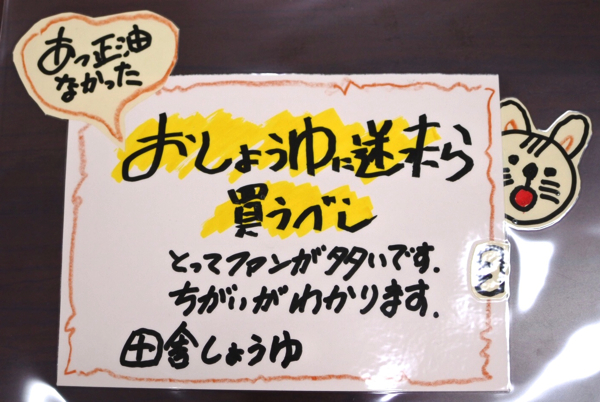 あっ正油
なかった
おしょうゆに迷たら
買うべし
とってファンが多いです.
ちがいがわかります.
田舎しょうゆ